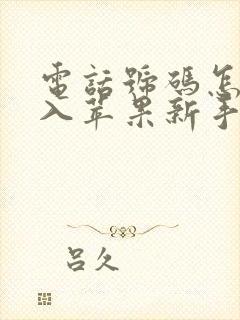 電話號碼怎
入苹果新手
呂久